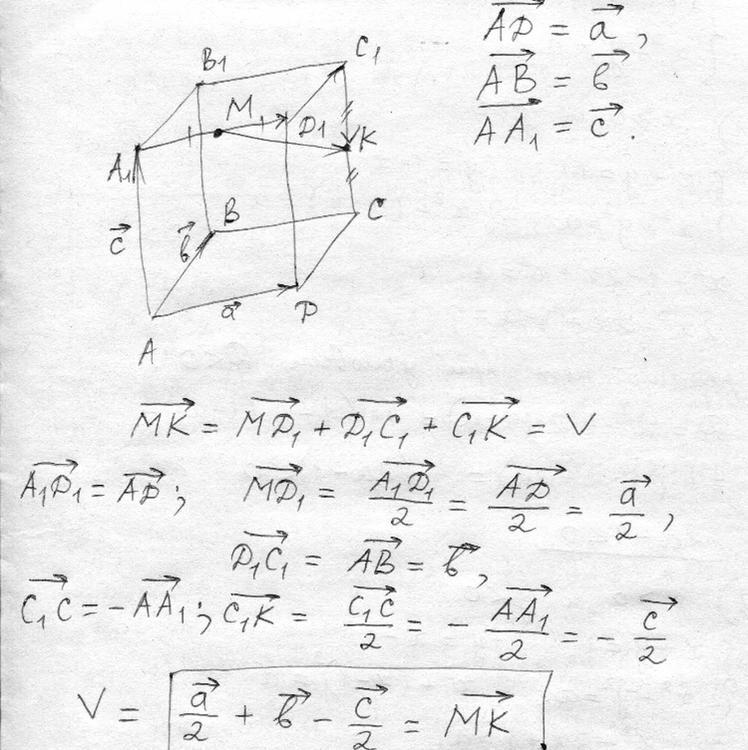 AD⃗ = a⃗,
AB⃗ = b⃗
AA₁⃗ = c⃗.
B₁
C₁
M
D₁
K
A₁
B
C
c⃗
b⃗
a⃗
D
A
MK⃗ = MD₁⃗ + D₁C₁⃗ + C₁K⃗ = V
A₁D₁⃗ = AD⃗; MD₁⃗ = A₁D₁⃗/2 = AD⃗/2 = a⃗/2,
D₁C₁⃗ = AB⃗ = b⃗,
C₁C⃗ = -AA₁⃗; C₁K⃗ = C₁C⃗/2 = - AA₁⃗/2 = - c⃗/2
V = a⃗/2 + b⃗ - c⃗/2 = MK⃗